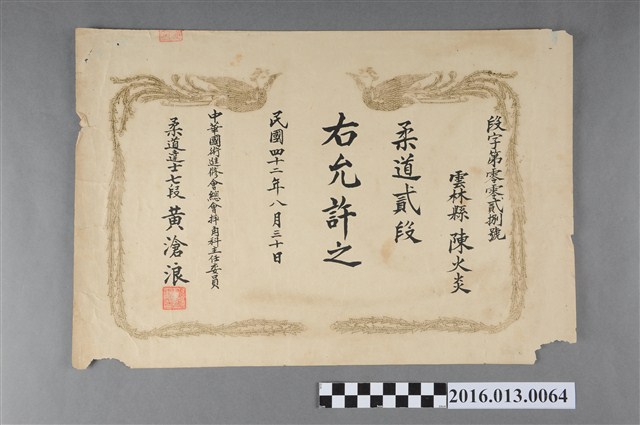 段字第零零貳捌號
雲林縣 陳火炎
柔道貳段
右允許之
民國四十二年八月三十日
中華國術進修會總會摔角科主任委員
柔道達士七段 黃滄浪
2016.013.0064